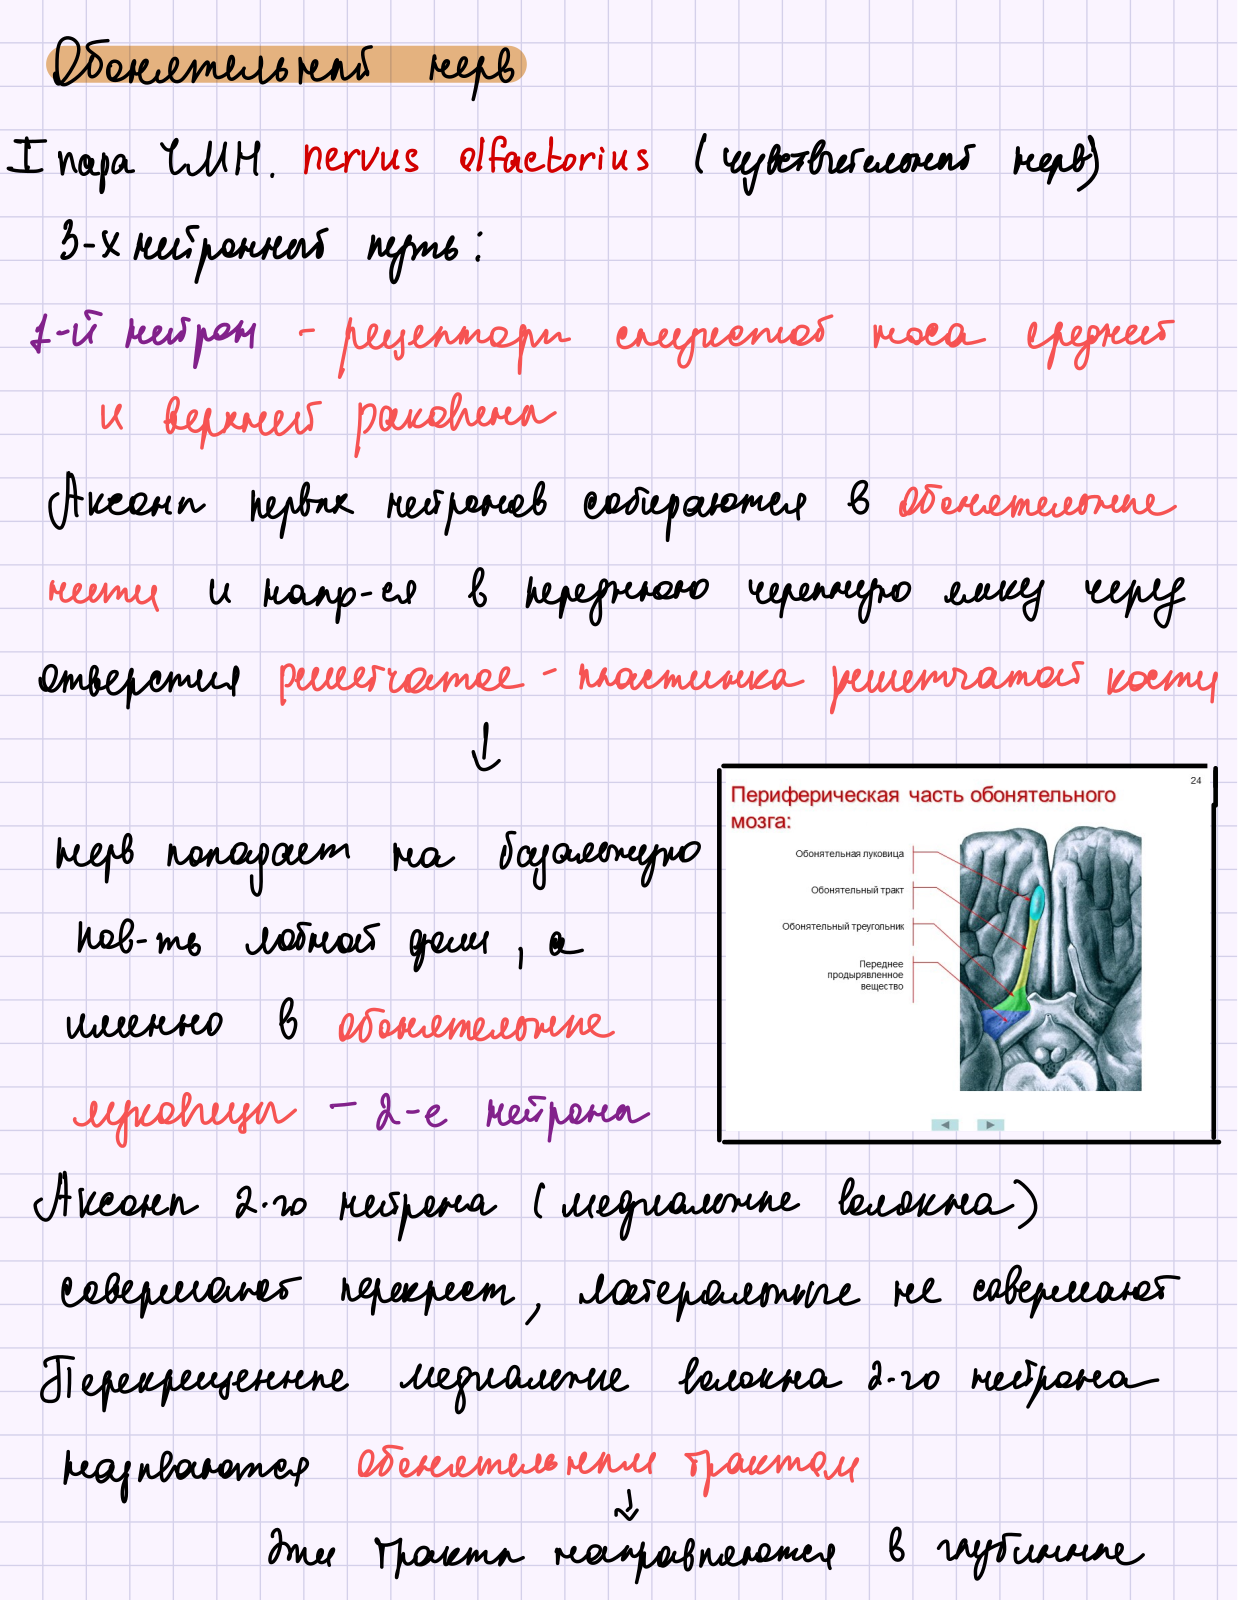 Обонятельный нерв
I пара ЧМН. nervus olfactorius (чувствительный нерв)
3-х нейронный путь:
1-й нейрон - рецепторы слизистой носа средней
и верхней раковины
Аксоны первых нейронов собираются в обонятельные
нити и напр-ся в переднюю черепную ямку через
отверстия решетчатое - пластинка решетчатой кости
↓
нерв попадает на базальную
пов-ть лобной доли, а
именно в обонятельные
луковицы - 2-е нейроны
24
Периферическая часть обонятельного
мозга:
Обонятельная луковица
Обонятельный тракт
Обонятельный треугольник
Переднее
продырявленное
вещество
Аксоны 2-го нейрона (медиальные волокна)
совершают перекрест, латеральные не совершают
Перекрещенные медиальные волокна 2-го нейрона
называются обонятельным трактом
↓
Эти тракты направляются в глубинные